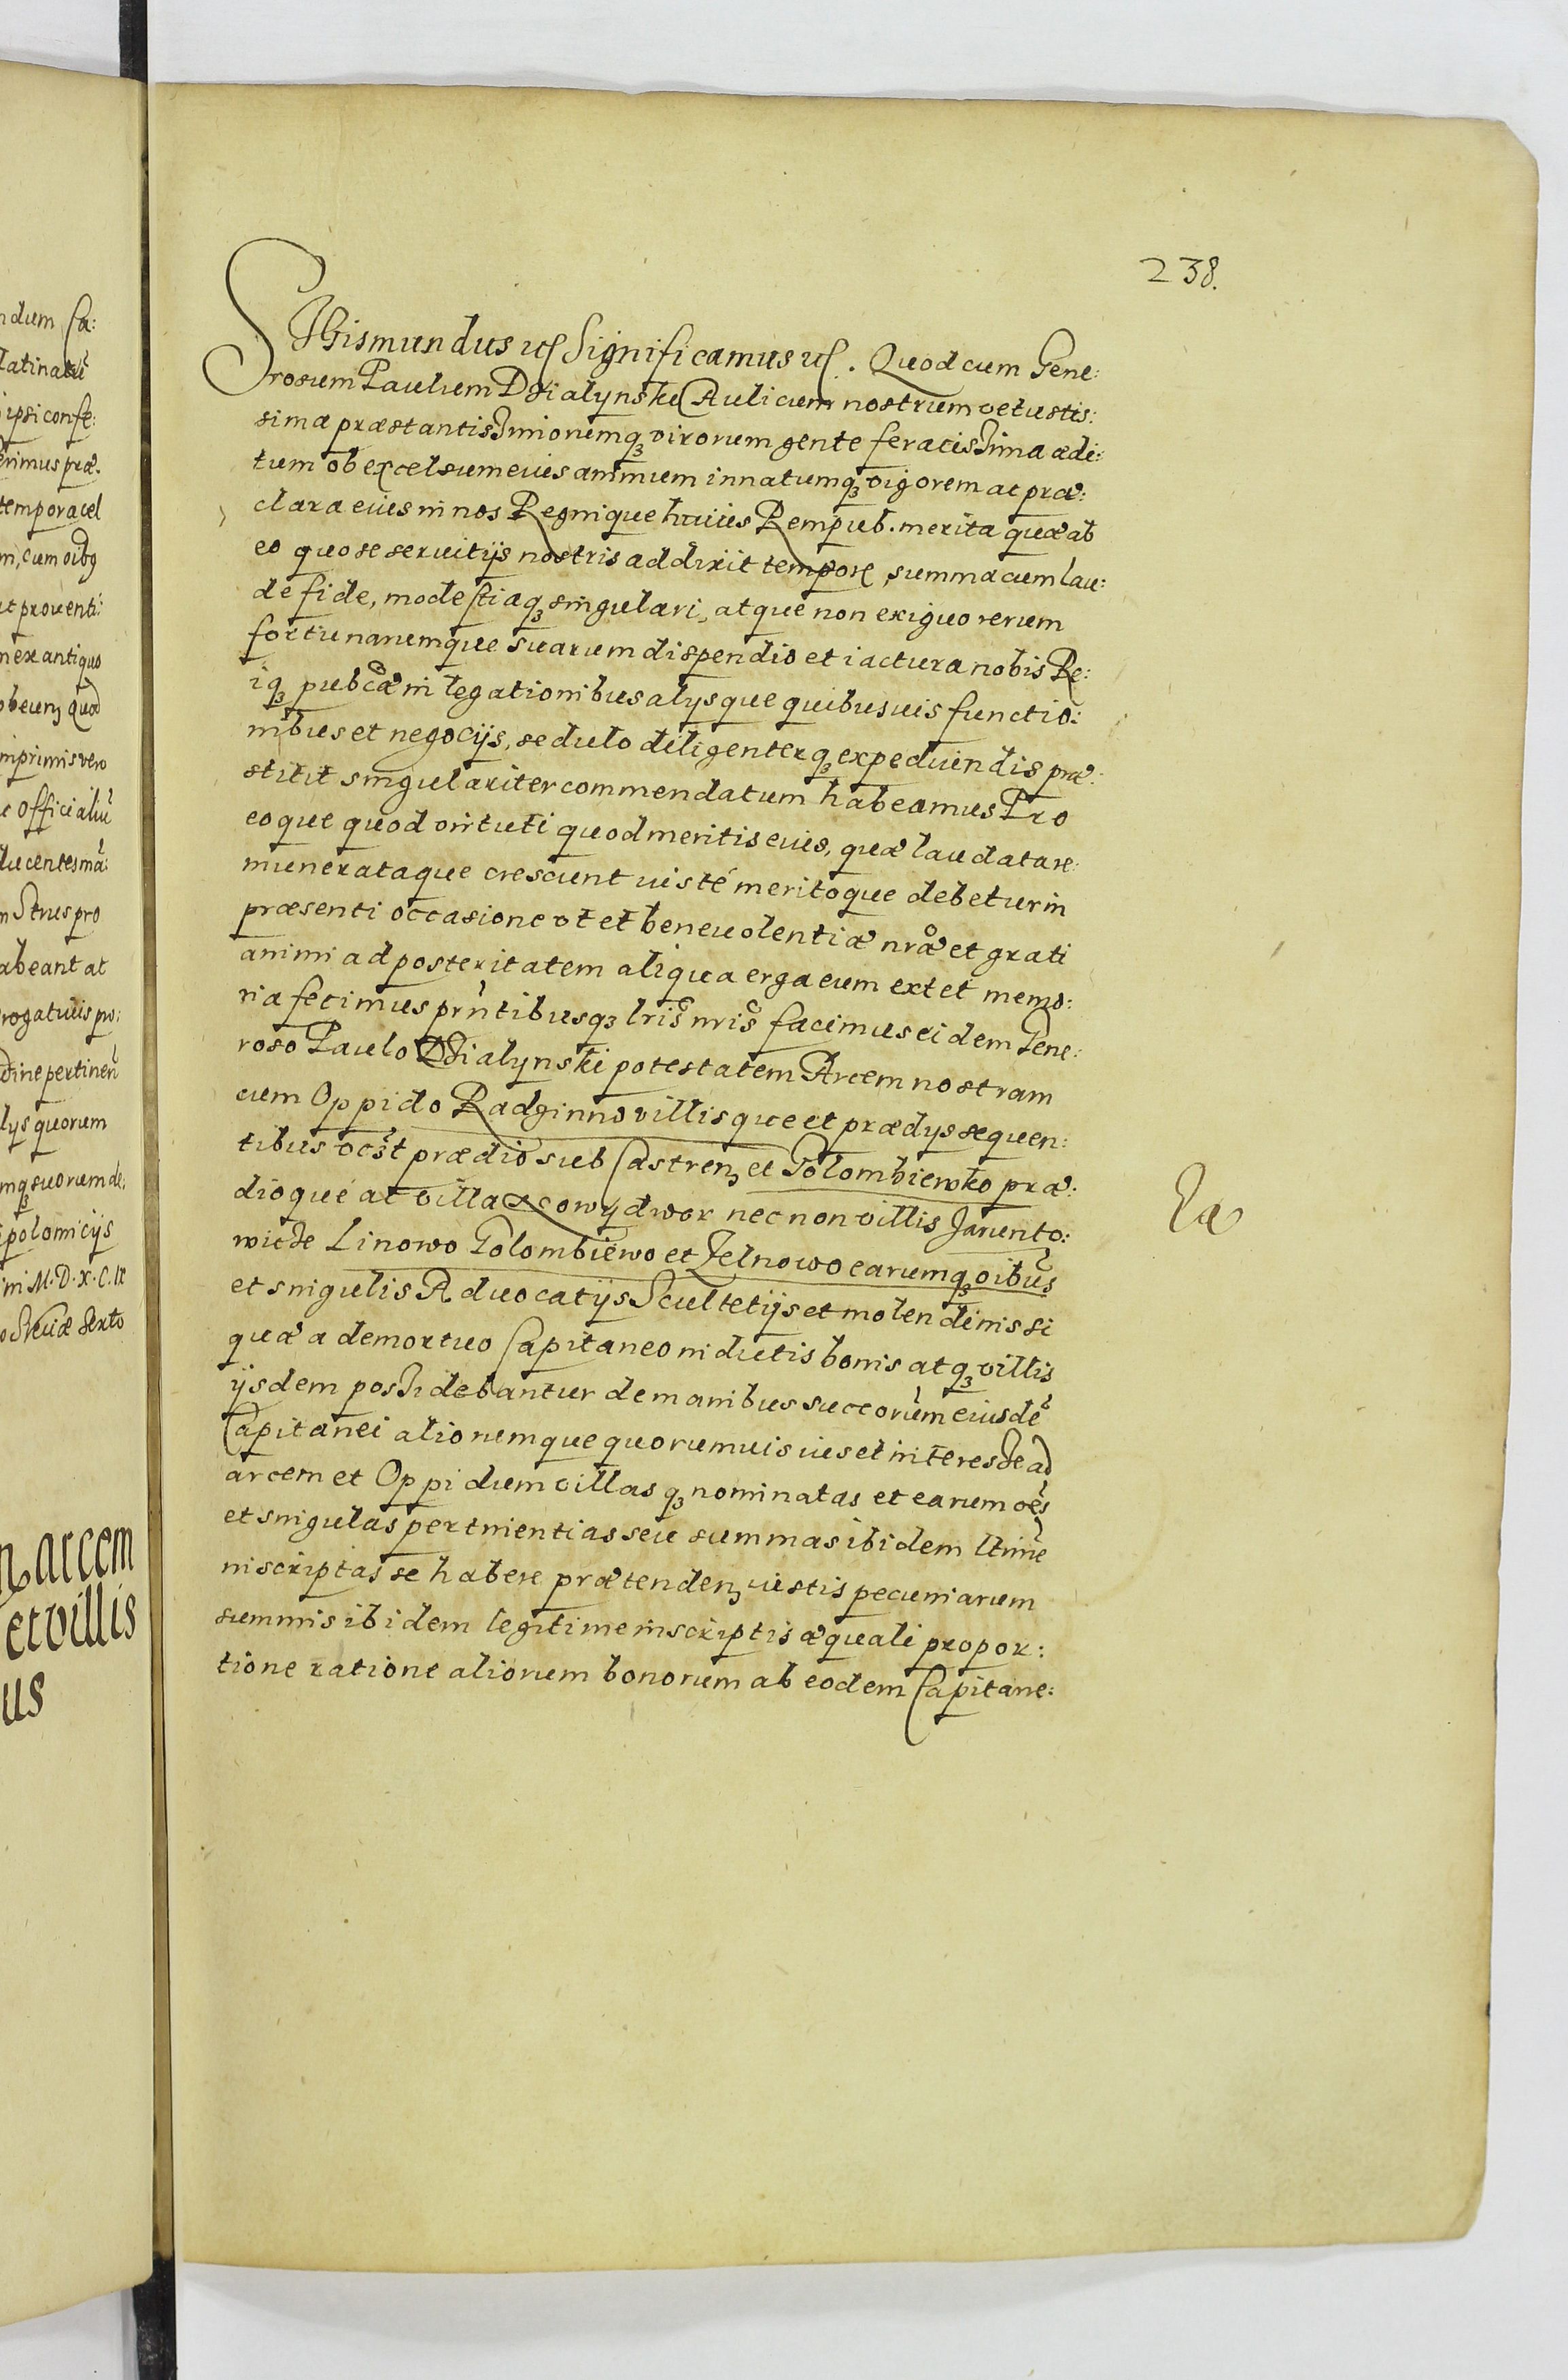 ndum Ca:
latinatũ
ipsi confe:
erimus præ.
tempora cel
m, cum oibꝫ
at proventi:
n ex antiquo
ob eunꝫ quod
imprimis vero
c Officialiũ
ducentes mã:
m Strus pro
abeant at
rogativis pro:
dine pertineñ
lijs quorum
mqꝫ suorum de:
polomicijs
ini M.D.X.C.IX
o Sveciæ Sexto
arcem
et villis
us
238.
SIgismundus ɾc Significamus ɾc. Quod cum Gene:
rosum Paulum Dzialynski Aulicum nostrum vetustis:
sima præstantissimorumqꝫ virorum gente feracissima ædi:
tum ob excelsum eius animum innatumqꝫ vigorem ac præ:
clara eius in nos Regnique huius Rempub. merita quæ ab
eo quo se servitijs nostris addixit tempore, summa cum lau:
de fide, modestiaqꝫ singulari, atque non exiguo rerum
fortunarumque suarum dispendio et iactura nobis Re:
iqꝫ pubcæ in legationibus alysque quibusuis functio:
nibus et negocijs, sedulo diligenterqꝫ expediendis præ:
stitit singulariter commendatum habeamus Pro
eoque quod virtuti quod meritis eius, quæ laudata re:
munerataque crescunt iusté meritoque debetur in
præsenti occasione vt et beneuolentiæ nræ et grati
animi ad posteritatem aliqua erga eum extet memo:
ria fecimus prñtibusqꝫ lris nris facimus eidem Gene:
roso Paulo Dzialynski potestatem Arcem nostram
cum Oppido Radginno villisque et prædys sequen:
tibus vcȝt prædio sub Castrenꝫ et Golombiewko præ:
dioqué ac villa scowydwor nec non villis Jarunto:
wicze Linowo Golombiewo et Jelnowo earumqꝫ oibus
et singulis Aduocatijs Scultetijs et molendinis si
quæ a demortuo Capitaneo in dictis bonis atqꝫ villis
ijsdem possidebantur de manibus succorum eiusdẽ
Capitanei aliorumque quorumuis ius et interesse ad
arcem et Oppidum villasqꝫ nominatas et earum oẽs
et singulas pertinentias seu summas ibidem ltime
inscriptas se habere prætendenꝫ iustis pecuniarum
summis ibidem legitime inscriptis æquali propor:
tione ratione aliorum bonorum ab eodem Capitane: